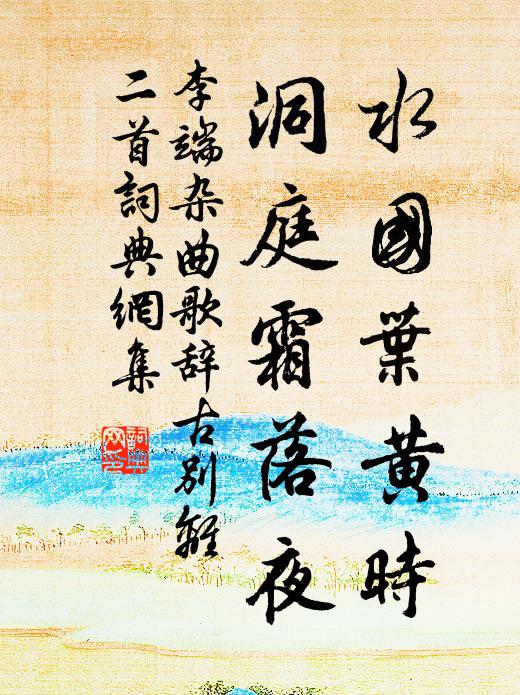 水國葉黃時
洞庭霜落夜
李端杂曲歌辞古别離
二首詞典網集